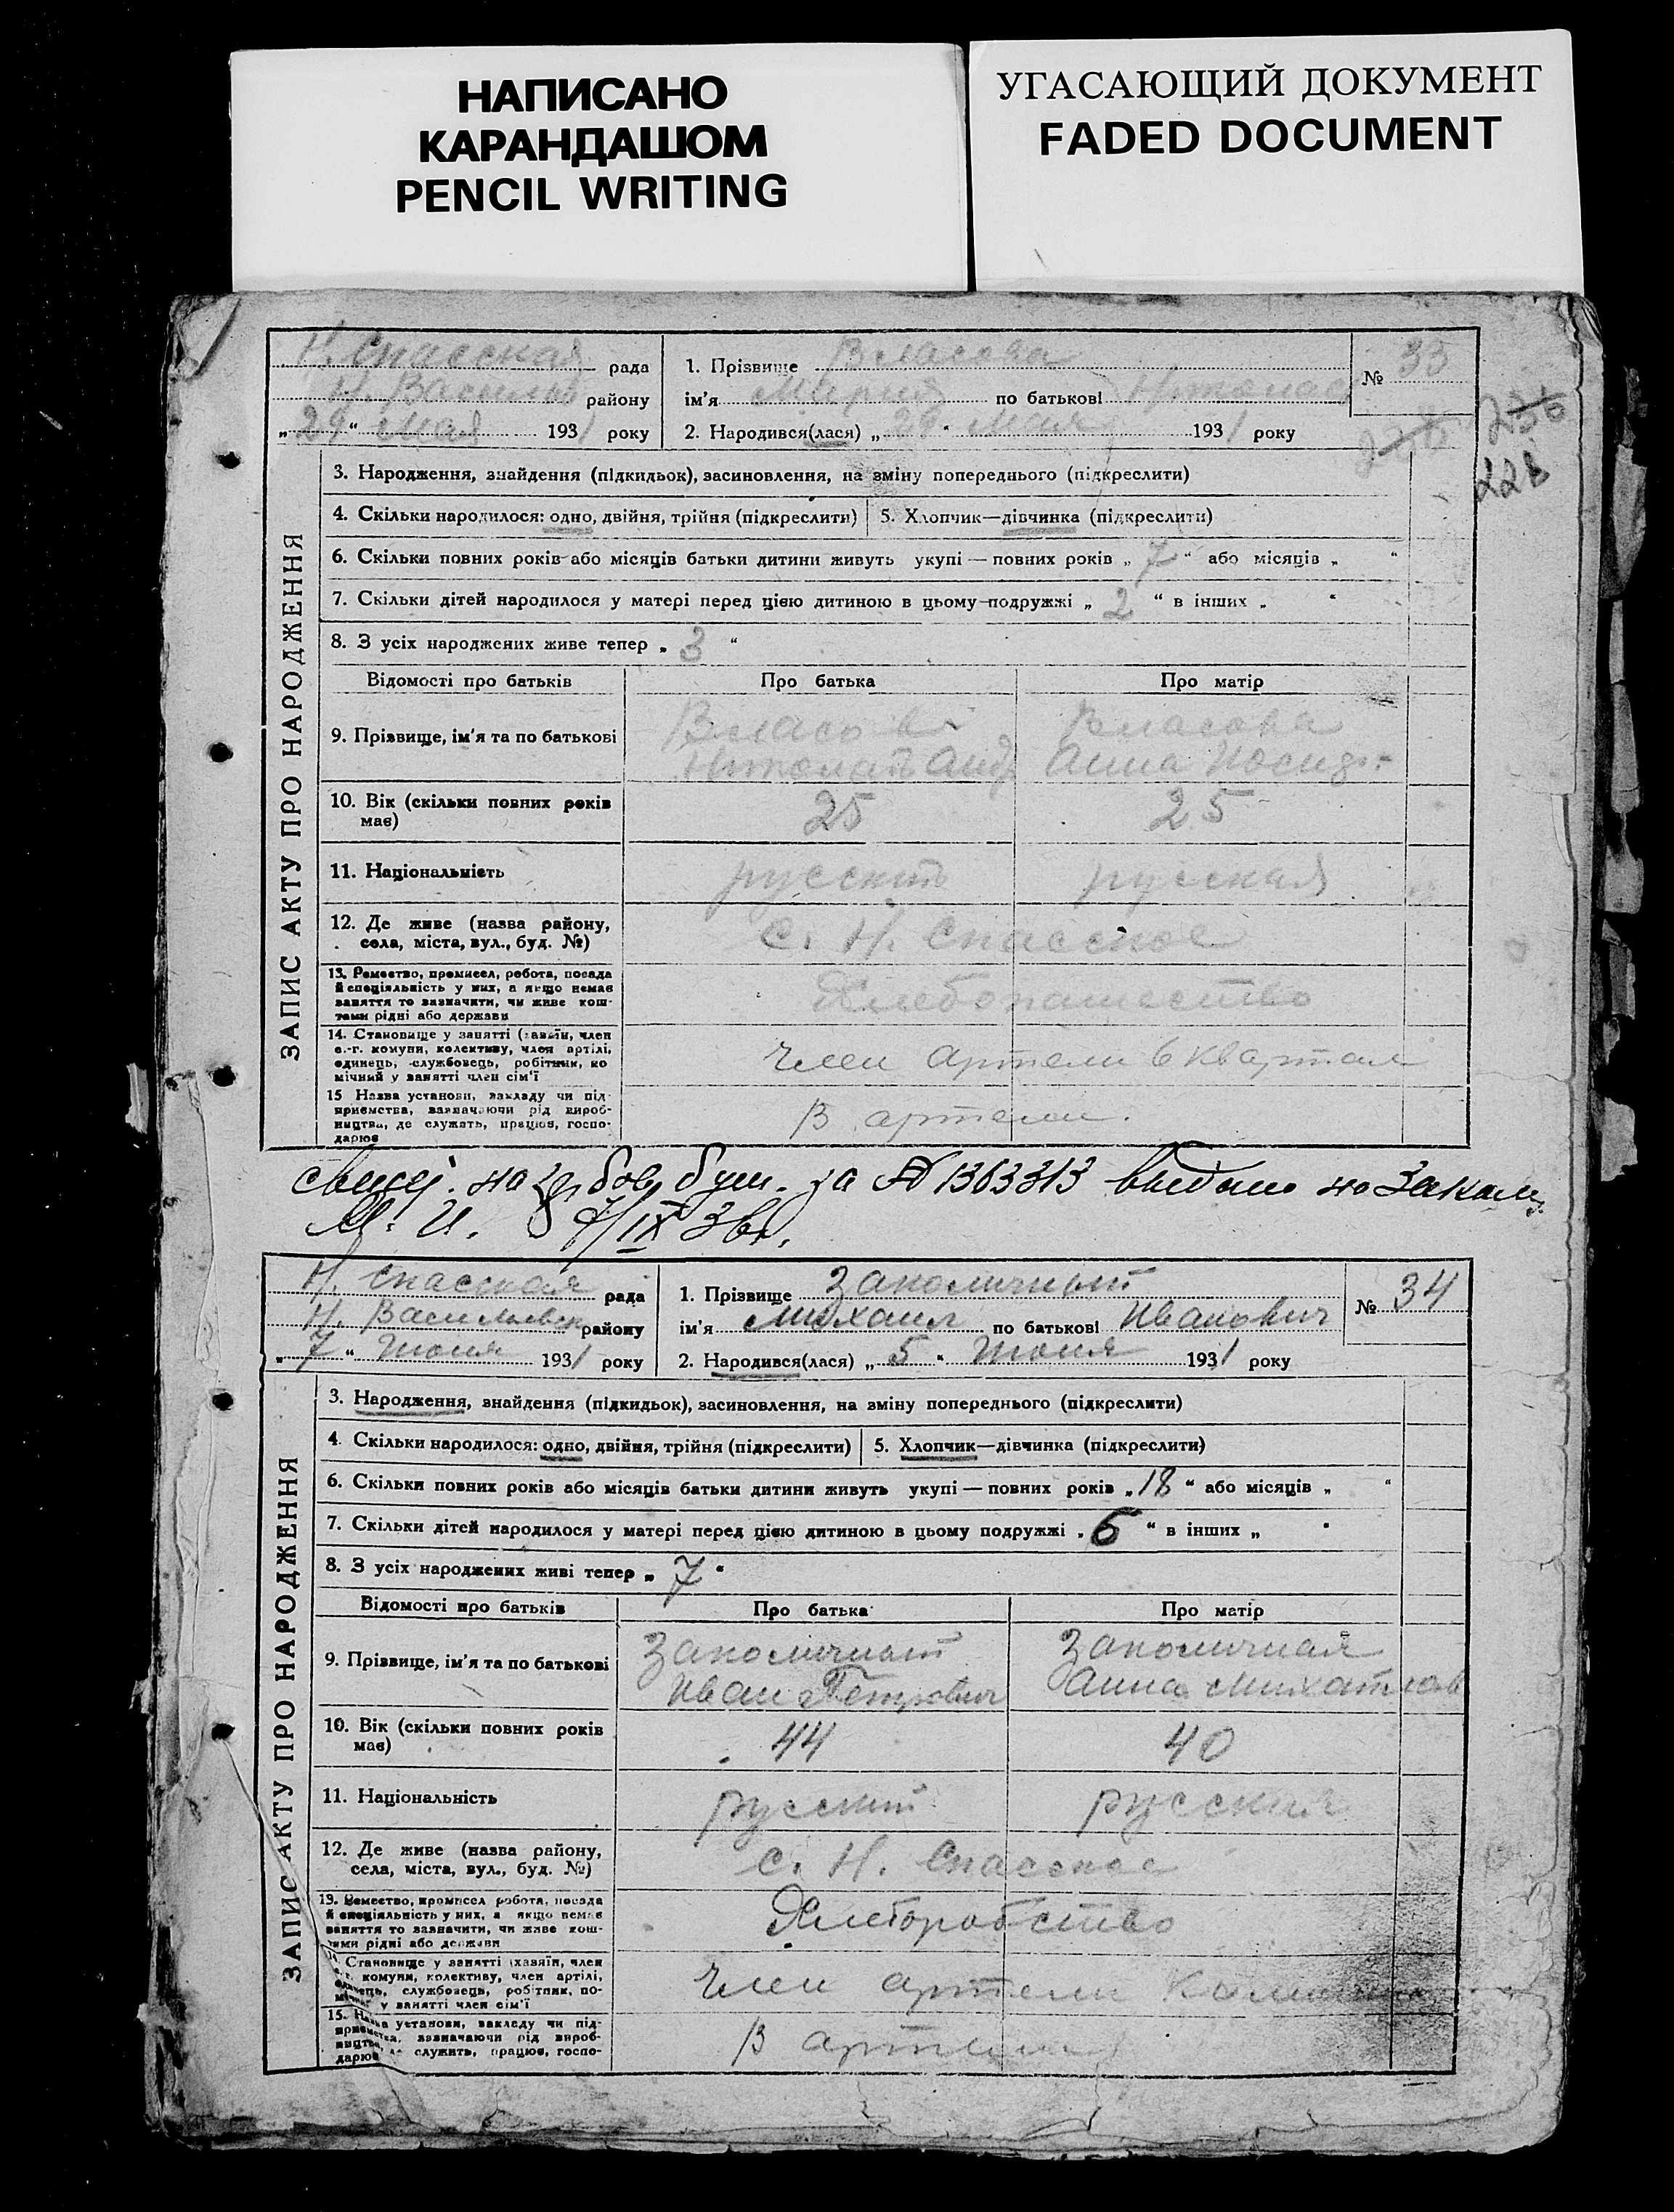 НАПИСАНО
КАРАНДАШОМ
PENCIL WRITING
УГАСАЮЩИЙ ДОКУМЕНТ
FADED DOCUMENT
Н. Спасская рада
Н. Василь району
„29“ Мая 1931 року
1. Прізвище Власова
ім'я Мария по батькові Николаев
2. Народився(лася) „29“ Мая 1931 року
№ 33
236
228
ЗАПИС АКТУ ПРО НАРОДЖЕННЯ
3. Народження, знайдення (підкидьок), засиновлення, на зміну попереднього (підкреслити)
4. Скільки народилося: одно, двійня, трійня (підкреслити) 5. Хлопчик—дівчинка (підкреслити)
6. Скільки повних років або місяців батьки дитини живуть укупі — повних років „7“ або місяців „ “
7. Скільки дітей народилося у матері перед цією дитиною в цьому подружжі „2“ в інших „ “
8. З усіх народжених живе тепер „3“
Відомості про батьків Про батька Про матір
9. Прізвище, ім'я та по батькові
Власов
Николай Анд
Власова
Анна
10. Вік (скільки повних років має) 25 25
11. Національність русский русская
12. Де живе (назва району, села, міста, вул., буд. №) С. Н. Спасское
13. Ремество, промисел, робота, посада
й спеціяльність у них, а якщо немає
заняття то зазначити, чи живе кош-
тами рідні або держави
Хлебопашество
14. Становище у занятті (хазяїн, член
с.-г. комуни, колективу, член артілі,
одинець, службовець, робітник, по
мічний у занятті член сім'ї
член артели 6 квартал
15 Назва установи, закладу чи під-
приємства, зазначаючи рід вироб-
ництва, де служать, працює, госпо-
дарює
В артели.
за № 1363313 на Закам
М. И. 7/IX 36г.
Н. Спасская рада
Н. Васильевск району
„7“ Июня 1931 року
1. Прізвище Закомичный
ім'я Михаил по батькові Иванович
2. Народився(лася) „5“ Июня 1931 року
№ 34
ЗАПИС АКТУ ПРО НАРОДЖЕННЯ
3. Народження, знайдення (підкидьок), засиновлення, на зміну попереднього (підкреслити)
4. Скільки народилося: одно, двійня, трійня (підкреслити) 5. Хлопчик—дівчинка (підкреслити)
6. Скільки повних років або місяців батьки дитини живуть укупі — повних років „18“ або місяців „ “
7. Скільки дітей народилося у матері перед цією дитиною в цьому подружжі „6“ в інших „ “
8. З усіх народжених живі тепер „7“
Відомості про батьків Про батька Про матір
9. Прізвище, ім'я та по батькові
Закомичный
Иван Петрович
Закомичная
Анна Михайлов
10. Вік (скільки повних років має) 44 40
11. Національність русский русский
12. Де живе (назва району, села, міста, вул., буд. №) С. Н. Спасское
13. Ремество, промисел робота, посада
й спеціяльність у них, а якщо немає
заняття то зазначити, чи живе кош-
тами рідні або держави
Хлеборобство
14. Становище у занятті (хазяїн, член
с.-г. комуни, колективу, член артілі,
одинець, службовець, робітник, по-
мічний у занятті член сім'ї
член артели
15. Назва установи, закладу чи під-
приємства, зазначаючи рід вироб-
ництва, де служить, працює, госпо-
дарює
В артели